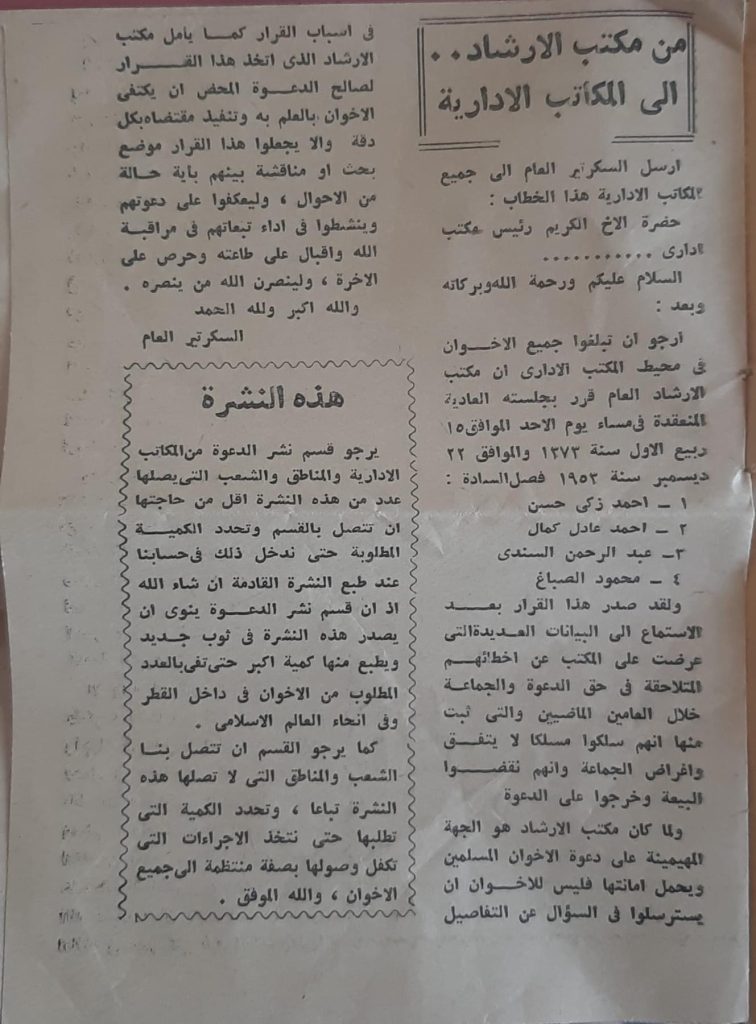 من مكتب الارشاد . .
الى المكاتب الادارية
ارسل السكرتير العام الى جميع
المكاتب الادارية هذا الخطاب :
حضرة الاخ الكريم رئيس مكتب
ادارى ............
السلام عليكم ورحمة الله وبركاته
وبعد :
ارجو ان تبلغوا جميع الاخــوان
فى محيط المكتب الادارى ان مكتب
الارشاد العام قرر بجلسته العادية
المنعقدة فى مساء يوم الاحد الموافق ١٥
ربيع الاول سنة ١٣٧٣ والموافق ٢٢
ديسمبر سنة ١٩٥٣ فصل السادة :
١ ــ احمد زكى حسن
٢ ــ احمد عادل كمال
٣ــ عبد الرحمن السندى
٤ ــ محمود الصباغ
ولقد صدر هذا القرار بعــد
الاستماع الى البيانات العديدة التى
عرضت على المكتب عن اخطائهــم
المتلاحقة فى حق الدعوة والجماعة
خلال العامين الماضيين والتى ثبت
منها انهم سلكوا مسلكا لا يتفــق
واغراض الجماعة وانهم نقضــوا
البيعة وخرجوا على الدعوة
ولما كان مكتب الارشاد هو الجهة
المهيمنة على دعوة الاخوان المسلمين
ويحمل امانتها فليس للاخــوان ان
يسترسلوا فى السؤال عن التفاصيل
فى اسباب القرار كمــا يأمل مكتب
الارشاد الذى اتخذ هذا القــــرار
لصالح الدعــوة المحض ان يكتفى
الاخوان بالعلم به وتنفيذ مقتضاه بكل
دقة والا يجعلوا هذا القرار موضع
بحث او مناقشة بينهم باية حــالة
من الاحوال ، وليعكفوا على دعوتهم
وينشطوا فى اداء تبعاتهم فى مراقبة
الله واقبال على طاعته وحرص على
الاخرة ، ولينصرن الله من ينصره .
والله اكبر ولله الحمد
السكرتير العام
هذه النشرة
يرجو قسم نشر الدعوة من المكاتب
الادارية والمناطق والشعب التى يصلها
عدد من هذه النشرة اقل من حاجتها
ان تتصل بالقسم وتحدد الكميــة
المطلوبة حتى ندخل ذلك فى حسابنا
عند طبع النشرة القادمة ان شاء الله
اذ ان قسم نشر الدعــوة ينوى ان
يصدر هذه النشرة فى ثوب جــديد
ويطبع منها كمية اكبر حتى تفى بالعدد
المطلوب من الاخوان فى داخل القطر
وفى انحاء العالم الاسلامى .
كما يرجو القسم ان تتصل بنــا
الشعب والمناطق التى لا تصلها هذه
النشرة تباعا ، وتحدد الكمية التى
تطلبها حتى نتخذ الاجراءات التى
تكفل وصولها بصفة منتظمة الى جميع
الاخوان ، والله الموفق .